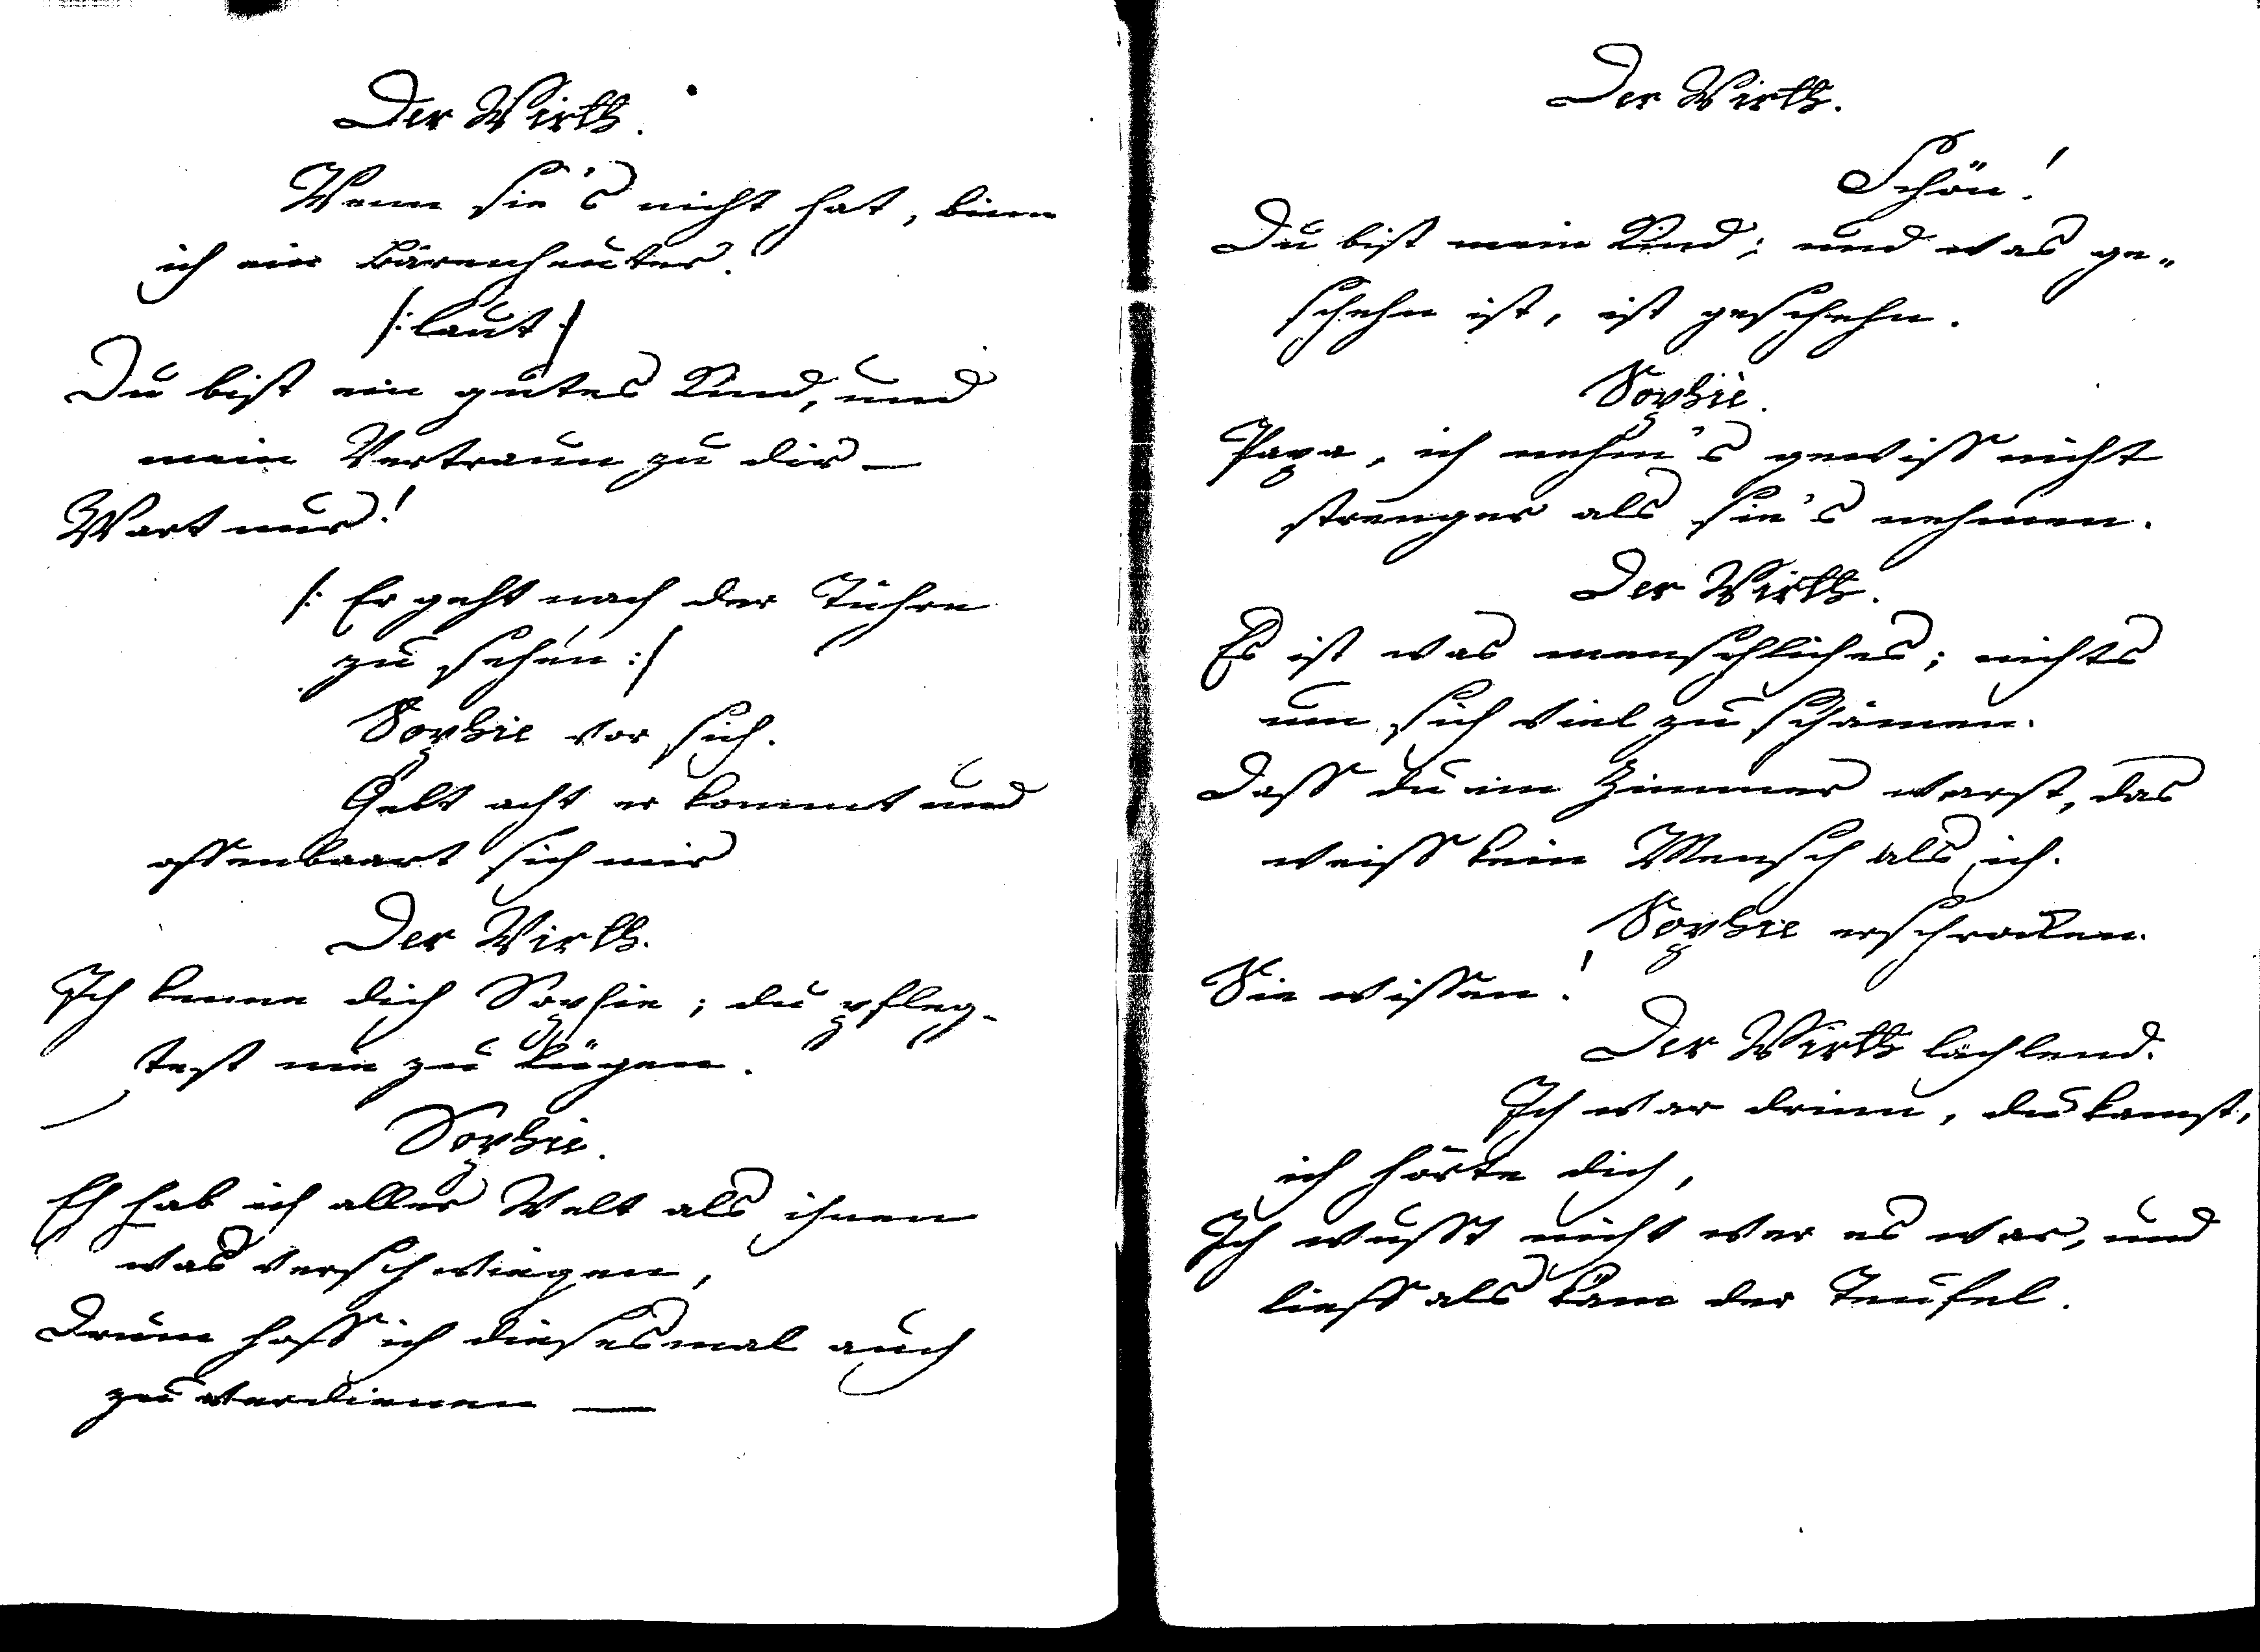 Der Wirth.
Wenn sie's nicht hat, binn
ich ein Bärenheuter.
/: laut :/
Du bist ein gutes Kind, und
mein Vertraun zu dir —
Wart nur!
/: Er geht nach der Tühre
zu sehen :/
Sophie vor sich.
Gebt acht er kommt und
offenbaart sich mir
Der Wirth.
Ich kenne dich Sophie; du pfleg-
test nie zu lügen.
Sophie.
Eh hab ich aller Welt als ihnen
was verschwiegen,
Drum hoff ich dieses mal auch
zu verdienen —
Der Wirth.
Schön!
Du bist mein Kind; und was ge-
schehn ist, ist geschehn.
Sophie.
Papa, ich nehm's gewiss nicht
strenger als sie's nehmen.
Der Wirth.
Es ist was menschliches; nichts
um sich viel zu schämen.
Dass du im Zimmer warst, das
weiss kein Mensch als ich.
Sophie erschrocken.
Sie wissen!
Der Wirth lächlend.
Ich war drinn, du kamst,
ich hörte dich,
Ich wusst nicht wer es war, und
lieff als käm der Teufel.